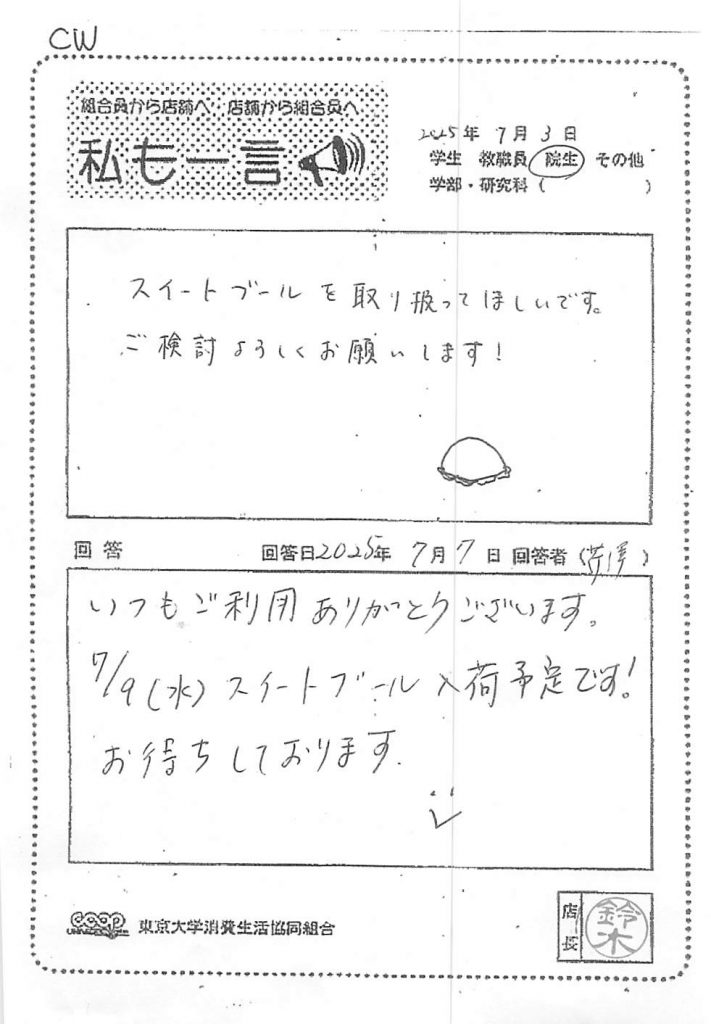 CW
組合員から店舗へ・店舗から組合員へ
私も一言
2025年 7月 3日
学生 教職員 院生 その他
学部・研究科 ( )
スイートブールを取り扱ってほしいです。
ご検討よろしくお願いします!
回答 回答日2025年 7月 7日 回答者 ( )
いつもご利用ありがとうございます。
7/9(水) スイートブール入荷予定です!
お待ちしております.
coop 東京大学消費生活協同組合
店長 鈴木